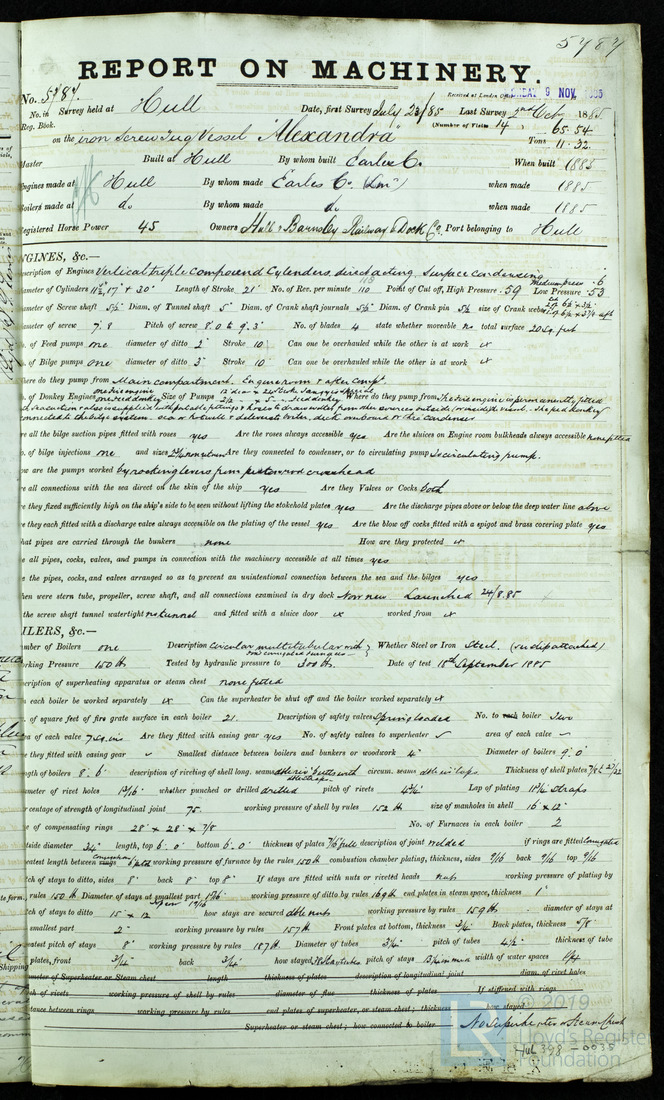 5787
REPORT ON MACHINERY.
No. 5787. Received at London Office MONDAY 9 NOV. 1885
No. in Survey held at Hull Date, first Survey July 23/85 Last Survey 2nd Oct 1885
Reg. Book. (Number of Visits 14) 65.54
on the iron Screw Tug Vessel "Alexandra" Tons 11.32
Master Built at Hull By whom built Earles Co. When built 1885
Engines made at Hull By whom made Earles Co. (Lmd) when made 1885
Boilers made at do. By whom made do. when made 1885
Registered Horse Power 45 Owners Hull & Barnsley Railway & Dock Co. Port belonging to Hull
NGINES, &c.—
escription of Engines Vertical triple compound Cylenders, direct acting, Surface condensing
iameter of Cylinders 11½, 17 & 30" Length of Stroke 21" No. of Rev. per minute 110 Point of Cut off, High Pressure .59 Medium press .6 Low Pressure .53
iameter of Screw shaft 5½" Diam. of Tunnel shaft 5" Diam. of Crank shaft journals 5½" Diam. of Crank pin 5½ size of Crank webs
iameter of screw 7'.8 Pitch of screw 8'.0 to 9'.3" No. of blades 4 state whether moveable no total surface 20 Sq. feet
o. of Feed pumps one diameter of ditto 2" Stroke 10" Can one be overhauled while the other is at work
o. of Bilge pumps one diameter of ditto 3" Stroke 10" Can one be overhauled while the other is at work
here do they pump from Main compartment. Engine room & after compt.
o. of Donkey Engines one fire engine one feed donkey Size of Pumps Where do they pump from The fire engine is permanently fitted
connected to the bilge system. sea or hotwell & delivers to boiler, deck overboard or the condenser
re all the bilge suction pipes fitted with roses yes Are the roses always accessible yes Are the sluices on Engine room bulkheads always accessible none fitted
o. of bilge injections one and sizes Are they connected to condenser, or to circulating pump To circulating pump.
ow are the pumps worked by rocking levers from piston rod crosshead
re all connections with the sea direct on the skin of the ship yes Are they Valves or Cocks both
re they fixed sufficiently high on the ship's side to be seen without lifting the stokehold plates yes Are the discharge pipes above or below the deep water line above
re they each fitted with a discharge valve always accessible on the plating of the vessel yes Are the blow off cocks fitted with a spigot and brass covering plate yes
hat pipes are carried through the bunkers none How are they protected
re all pipes, cocks, valves, and pumps in connection with the machinery accessible at all times yes
re the pipes, cocks, and valves arranged so as to prevent an unintentional connection between the sea and the bilges yes
hen were stern tube, propeller, screw shaft, and all connections examined in dry dock Now new Launched 24/8.85
the screw shaft tunnel watertight no tunnel and fitted with a sluice door worked from
ILERS, &c.—
umber of Boilers one Description Circular multitubular with two corrugated furnaces Whether Steel or Iron Steel. (see dep attached)
orking Pressure 150 lb Tested by hydraulic pressure to 300 lb. Date of test 18th September 1885
escription of superheating apparatus or steam chest none fitted
n each boiler be worked separately Can the superheater be shut off and the boiler worked separately
. of square feet of fire grate surface in each boiler 21. Description of safety valves Spring loaded No. to each boiler Two
ea of each valve 7 sq. ins Are they fitted with easing gear yes No. of safety valves to superheater area of each valve
e they fitted with easing gear Smallest distance between boilers and bunkers or woodwork 4" Diameter of boilers 9'.0"
ngth of boilers 8'.6" description of riveting of shell long. seams dble riv. butts with dble straps. circum. seams dble riv laps. Thickness of shell plates
ameter of rivet holes 13/16" whether punched or drilled drilled pitch of rivets Lap of plating straps
r centage of strength of longitudinal joint 75. working pressure of shell by rules 152 lb size of manholes in shell 16 × 12"
ze of compensating rings 28" × 28" × 7/8 No. of Furnaces in each boiler 2
tside diameter 34" length, top 6'.0" bottom 6'.0" thickness of plates description of joint welded if rings are fitted corrugated
eatest length between rings working pressure of furnace by the rules 150 lb combustion chamber plating, thickness, sides 9/16 back 9/16 top 9/16
tch of stays to ditto, sides 8" back 8" top 8" If stays are fitted with nuts or riveted heads nuts working pressure of plating by
rules 150 lb Diameter of stays at smallest part working pressure of ditto by rules 169 lb end plates in steam space, thickness 1"
tch of stays to ditto 15" × 12 how stays are secured dble nuts working pressure by rules 159 lb diameter of stays at
smallest part 2" working pressure by rules 157 lb Front plates at bottom, thickness 3/4" Back plates, thickness 5/8"
eatest pitch of stays 8" working pressure by rules 187 lb Diameter of tubes 3¼" pitch of tubes 4½" thickness of tube
plates, front 3/4" back 3/4" how stayed pitch of stays width of water spaces
ameter of Superheater or Steam chest length thickness of plates description of longitudinal joint diam. of rivet holes
tch of rivets working pressure of shell by rules diameter of flue thickness of plates If stiffened with rings
stance between rings working pressure by rules end plates of superheater, or steam chest; thickness how stayed
Superheater or steam chest; how connected to boiler No Superheater or Steam Chest
© 2019
LR Lloyd's Register Foundation
Hul 398-0035